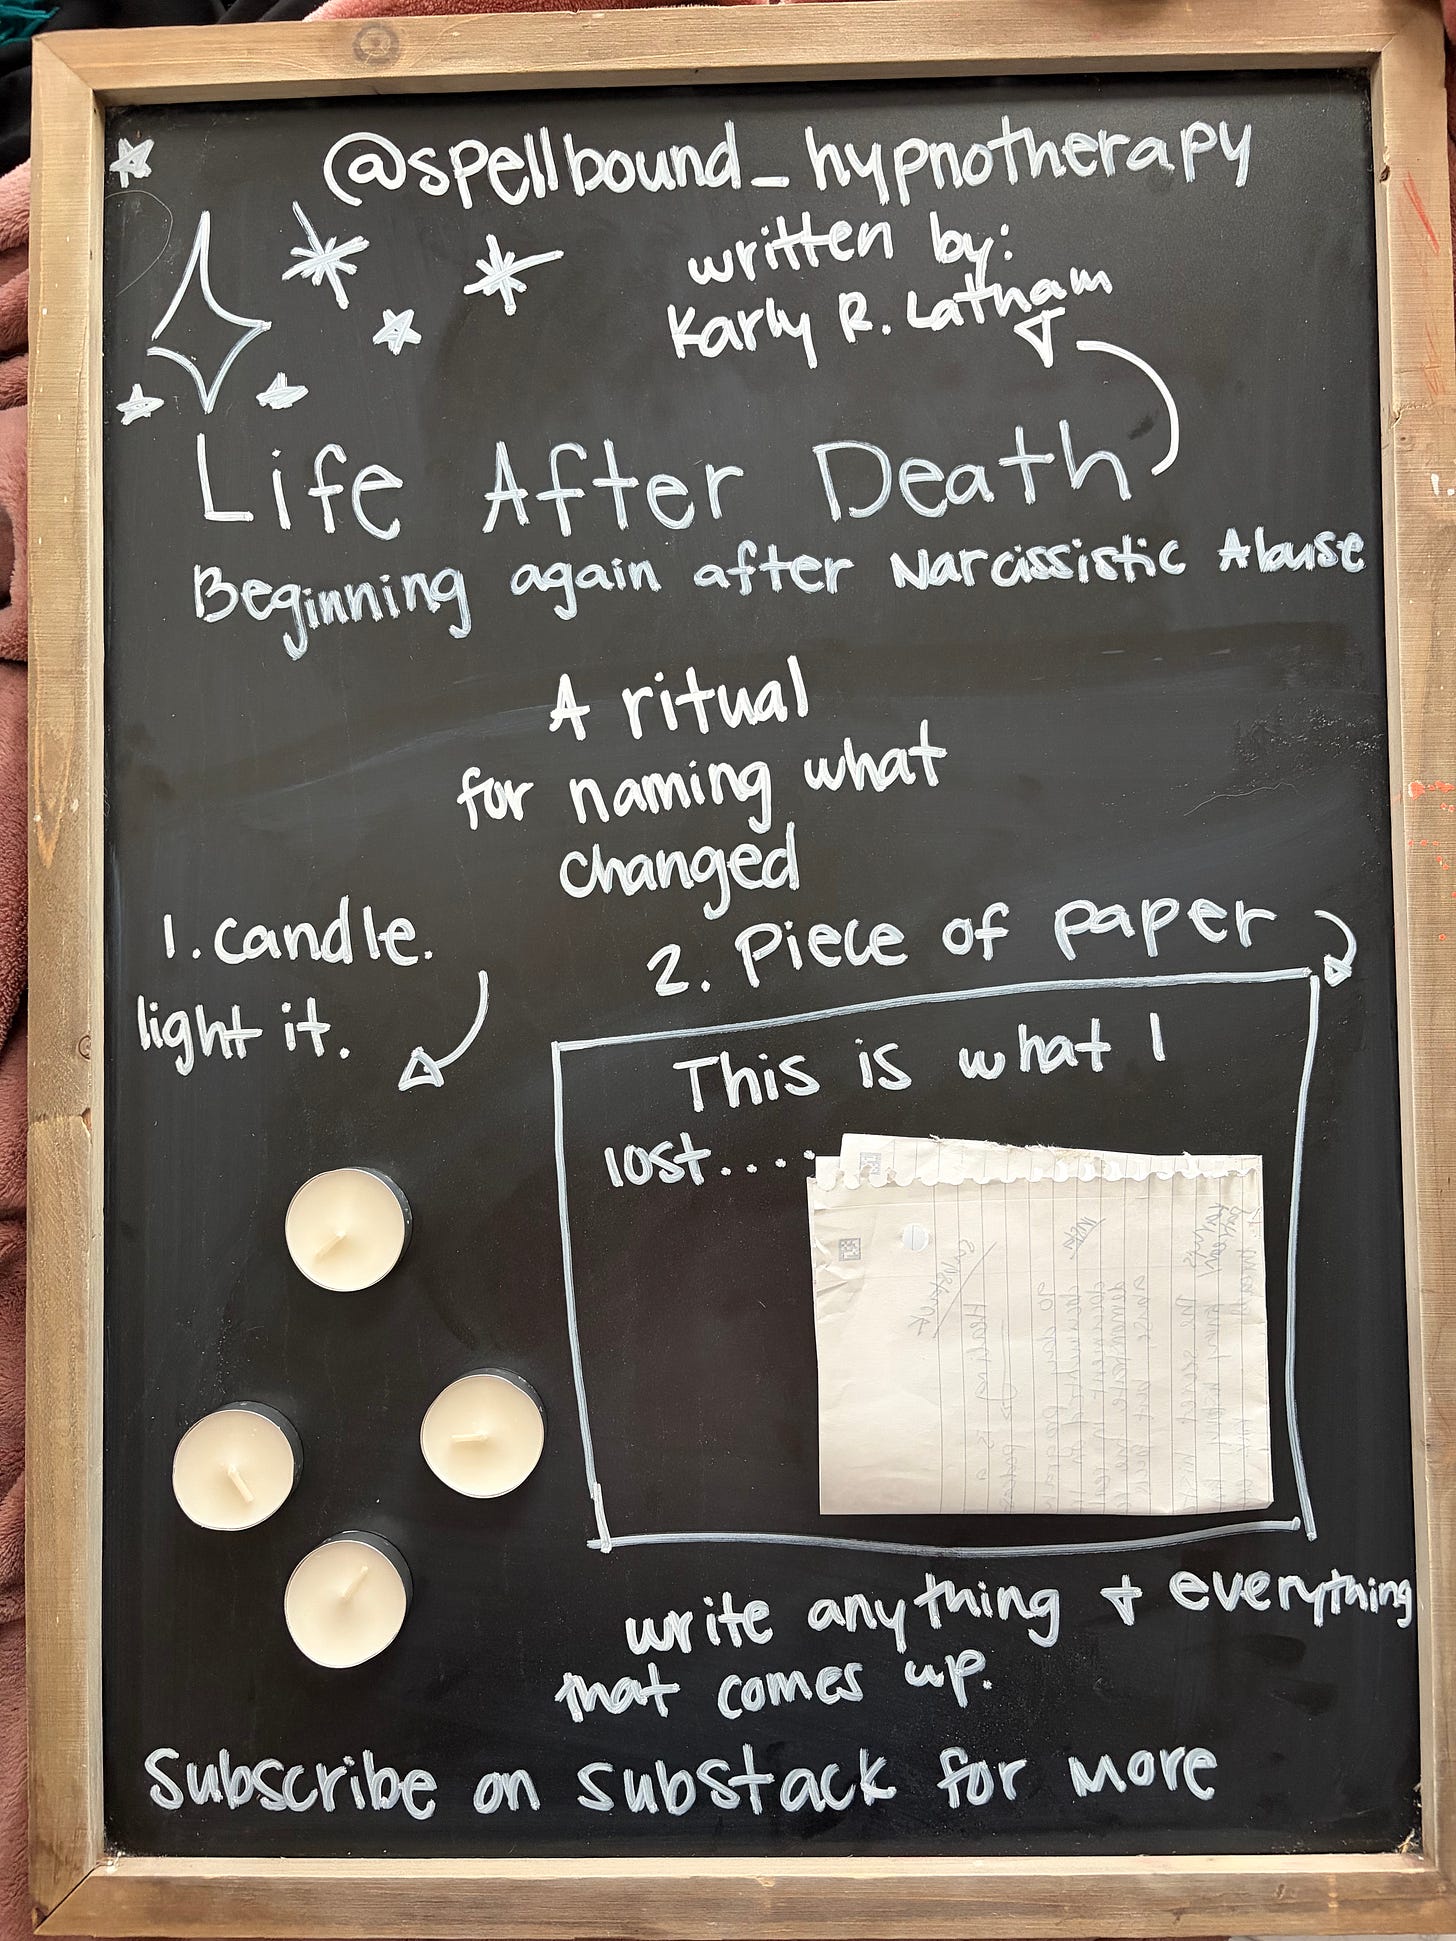 @spellbound_hypnotherapy
written by:
Karly R. Latham
Life After Death
Beginning again after Narcissistic Abuse
A ritual
for naming what
changed
1. candle.
light it.
2. Piece of paper
This is what I
lost.....
write anything + everything
that comes up.
Subscribe on substack for more